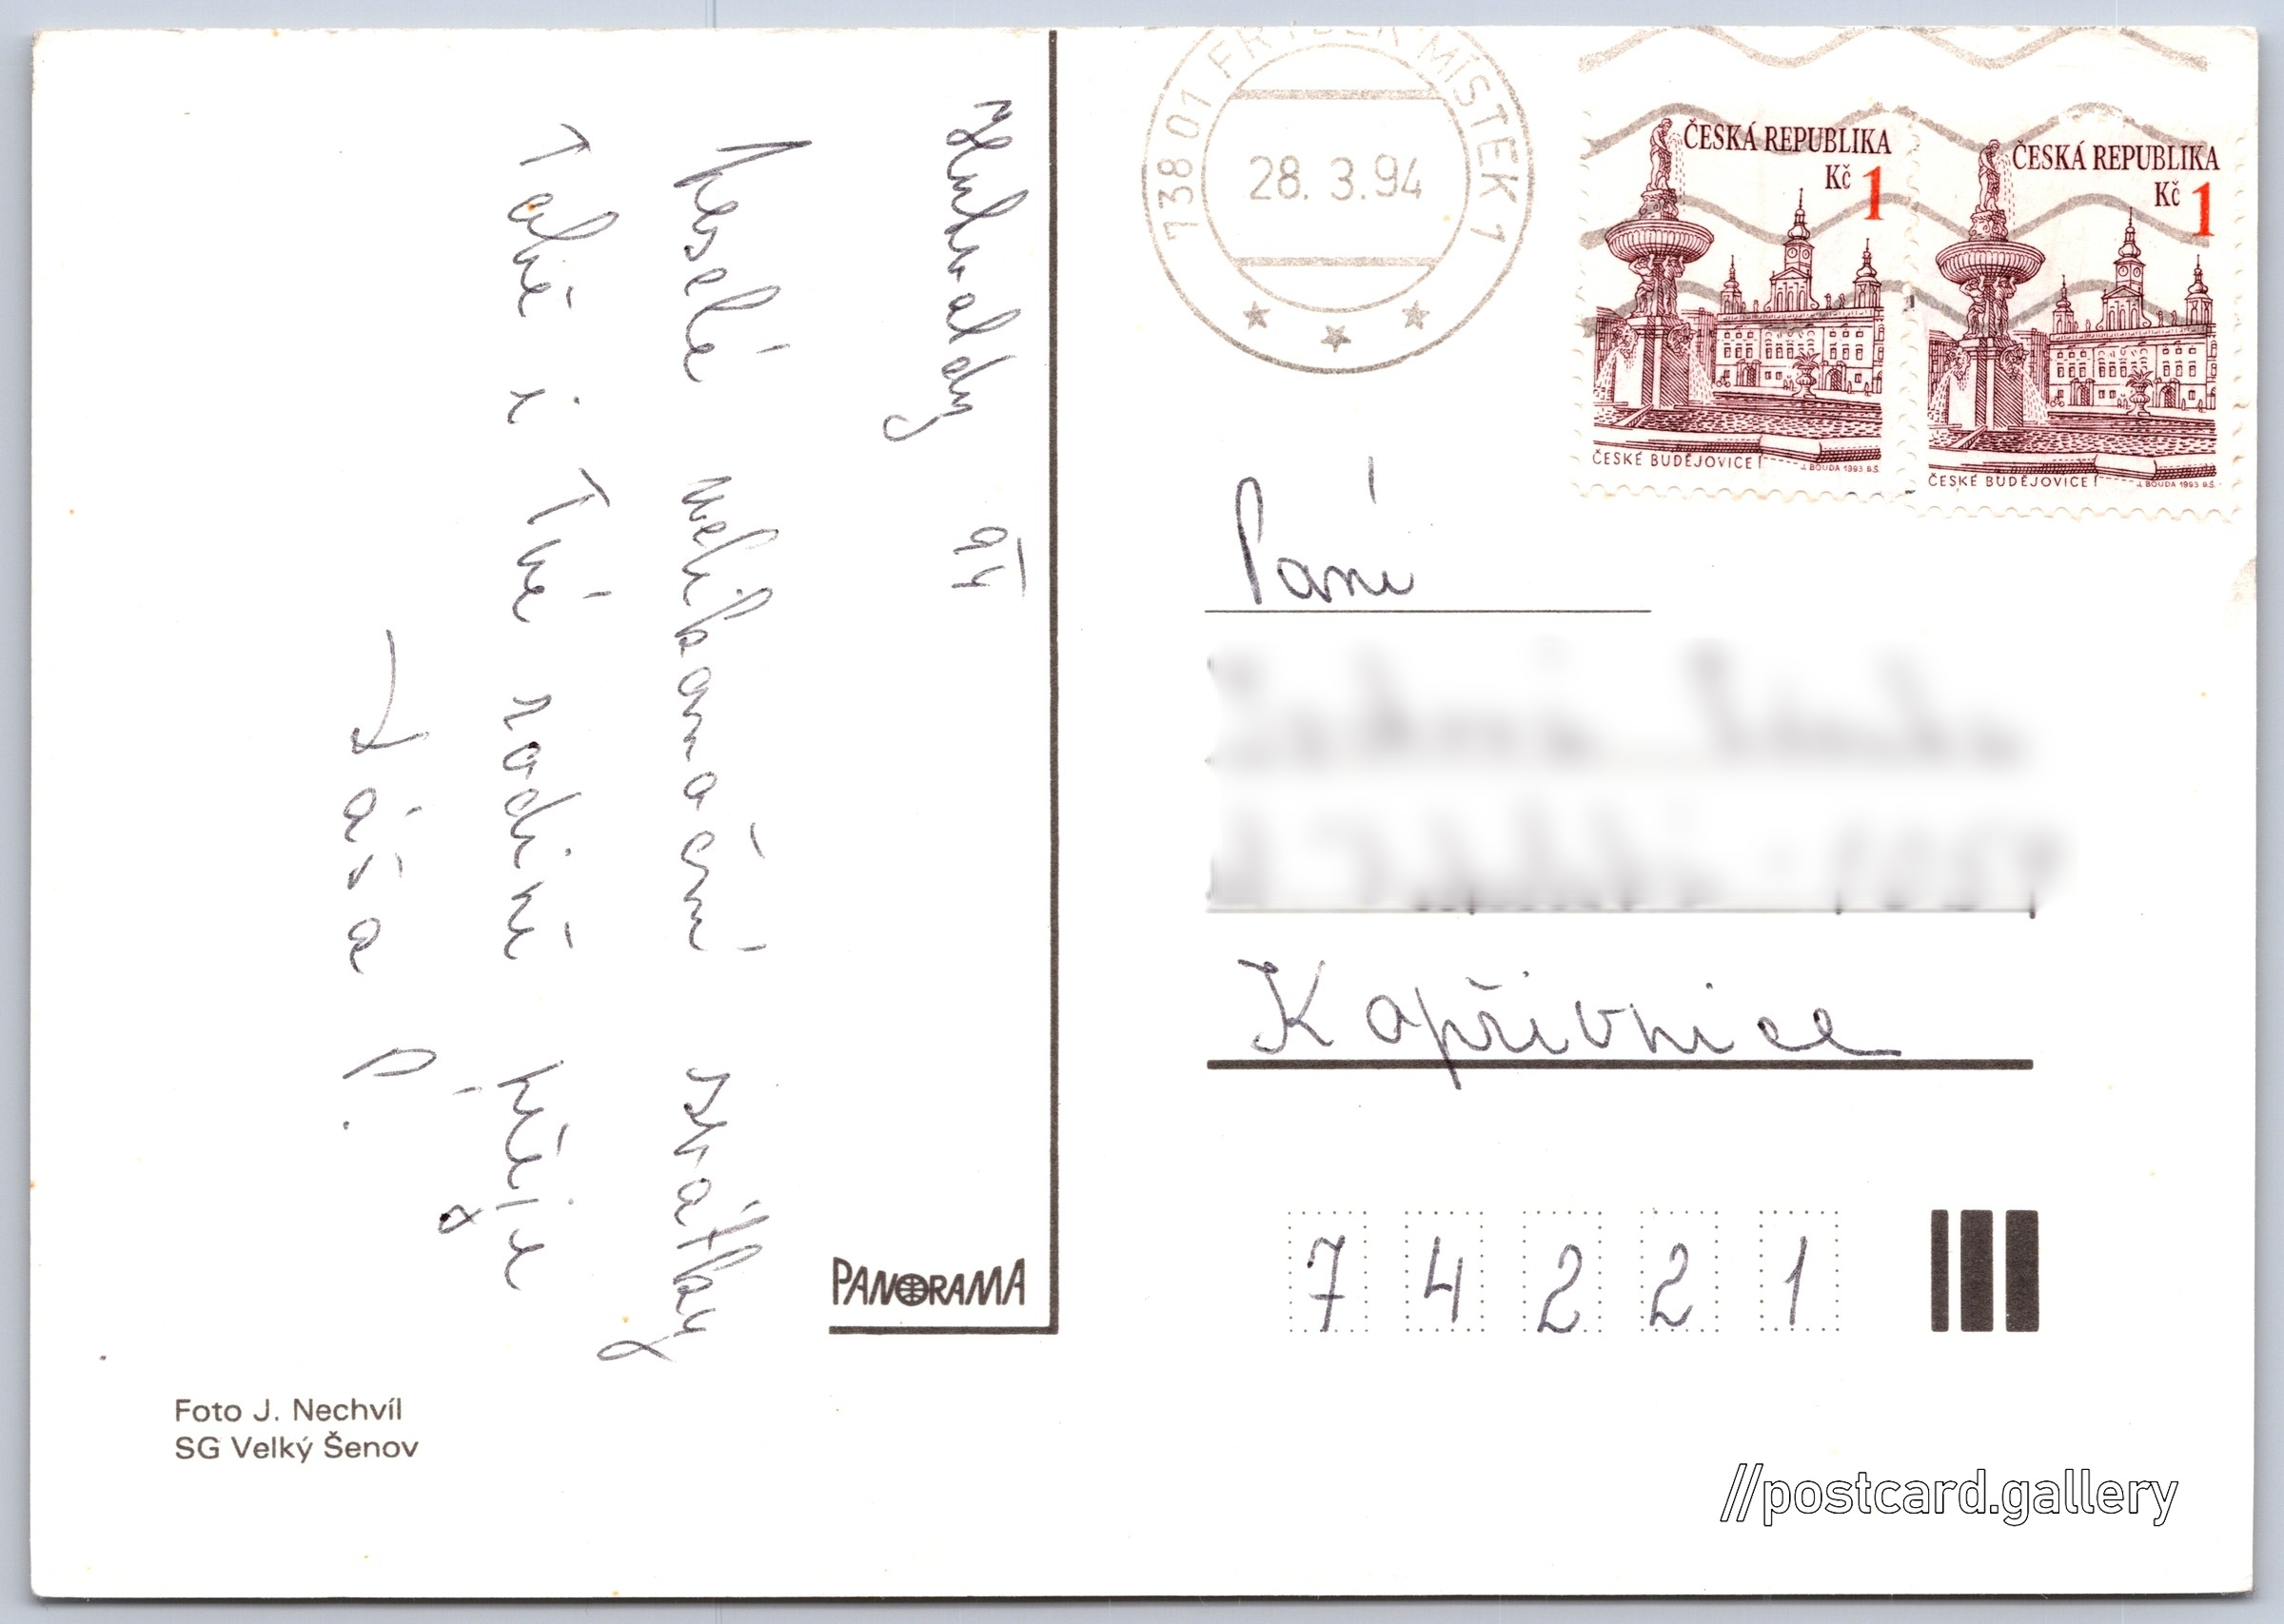 94
Veselé velikonoční svátky
Tobě i Tvé rodině
přeje
Dáša P.
PANORAMA
Foto J. Nechvíl
SG Velký Šenov
738 01 FRÝDEK MÍSTEK 1
28. 3. 94
ČESKÁ REPUBLIKA
Kč 1
ČESKÉ BUDĚJOVICE
J. BOUDA 1993 B.Š.
ČESKÁ REPUBLIKA
Kč 1
ČESKÉ BUDĚJOVICE
J. BOUDA 1993 B.Š.
Paní
Kopřivnice
7 4 2 2 1
//postcard.gallery